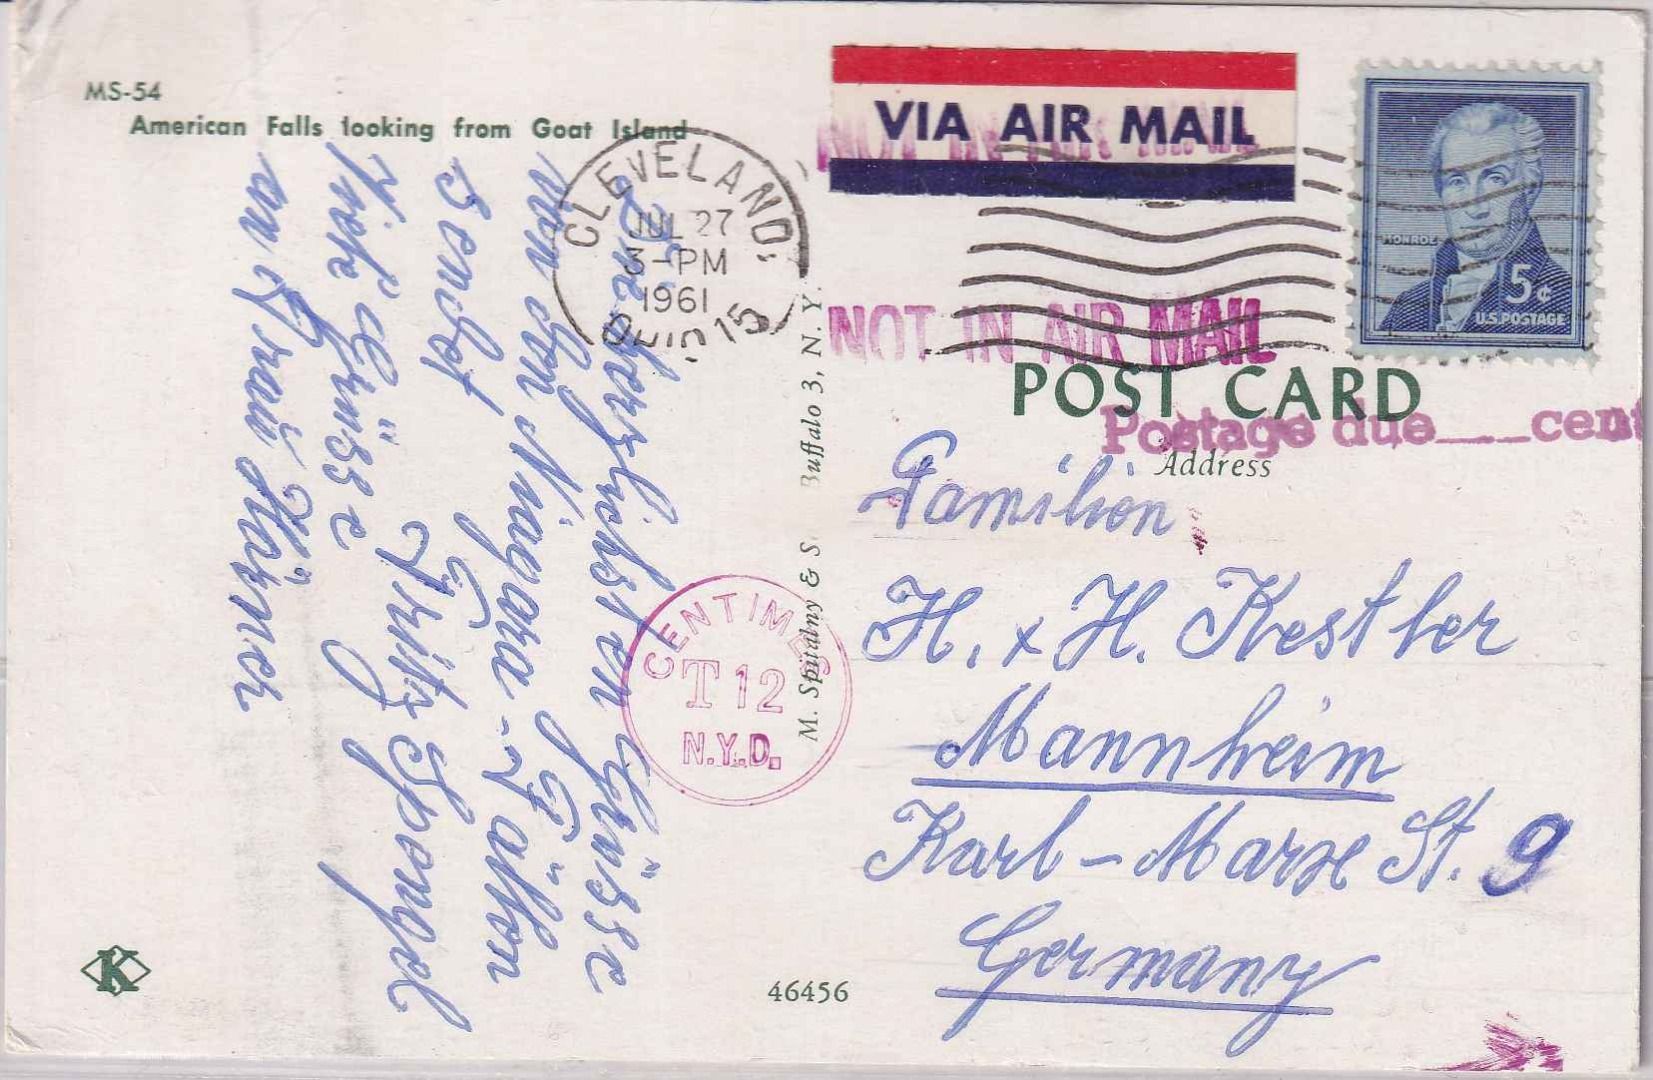 MS-54
American Falls looking from Goat Island
Die herzlichsten Grüsse
von den Niagara-Fällen
sendet
Fritz Spengel
Viele Grüsse
an Frau Härner
CLEVELAND,
JUL 27
3-PM
1961
OHIO 15
VIA AIR MAIL
NOT IN AIR MAIL
NOT IN AIR MAIL
MONROE
5¢
U.S. POSTAGE
POST CARD
Postage due___cent
Address
Familien
H. x H. Kestler
Mannheim
Karl-Marx St. 9
Germany
CENTIMES
T 12
N.Y.D.
M. Spitalny & S Buffalo 3, N. Y.
K
46456